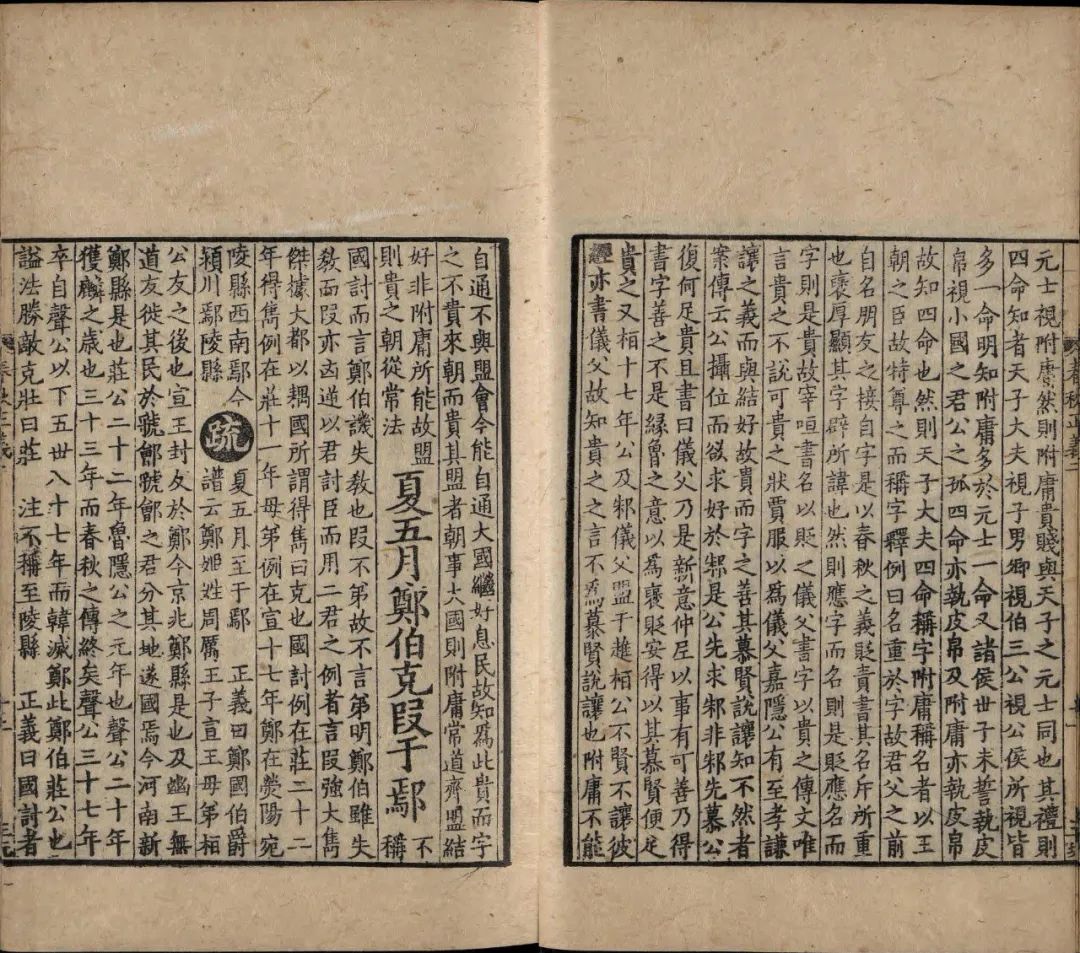 元士視附庸然則附庸貴賤與天子之元士同也其禮則
四命知者天子大夫視子男卿視伯三公視公侯所視皆
多一命明知附庸多於元士一命又諸侯世子未誓執皮
帛視小國之君公之孤四命亦執皮帛及附庸亦執皮帛
故知四命也然則天子大夫四命稱字附庸稱名者以王
朝之臣故特尊之而稱字釋例曰名重於字故君父之前
自名朋友之接自字是以春秋之義貶責書其名斥所重
也褒厚顯其字辟所諱也然則應字而名則是貶應名而
字則是貴故宰咺書名以貶之儀父書字以貴之傳文唯
言貴之不說可貴之狀賈服以爲儀父嘉隱公有至孝謙
讓之義而與結好故貴而字之善其慕賢說讓知不然者
案傳云公攝位而欲求好於邾是公先求邾非邾先慕公
復何足貴且書曰儀父乃是新意仲尼以事有可善乃得
書字善之不是緣魯之意以爲褒貶安得以其慕賢便足
貴之又桓十七年公及邾儀父盟于趡桓公不賢不讓彼
經亦書儀父故知貴之之言不爲慕賢說讓也附庸不能
自通不與盟會今能自通大國繼好息民故知爲此貴而字
之不貴來朝而貴其盟者朝事大國則附庸常道齊盟結
好非附庸所能故盟
則貴之朝從常法
夏五月鄭伯克段于鄢
不
稱
國討而言鄭伯譏失教也段不弟故不言弟明鄭伯雖失
教而段亦凶逆以君討臣而用二君之例者言段強大儁
傑據大都以耦國所謂得儁曰克也國討例在莊二十二
年得儁例在莊十一年母弟例在宣十七年鄭在滎陽宛
陵縣西南鄢今
潁川鄢陵縣
疏
夏五月至于鄢　正義曰鄭國伯爵
譜云鄭姬姓周厲王子宣王母弟桓
公友之後也宣王封友於鄭今京兆鄭縣是也及幽王無
道友徙其民於虢鄶虢鄶之君分其地遂國焉今河南新
鄭縣是也莊公二十二年魯隱公之元年也聲公二十年
獲麟之歲也三十三年而春秋之傳終矣聲公三十七年
卒自聲公以下五世八十七年而韓滅鄭此鄭伯莊公也
謚法勝敵克壯曰莊　注不稱至陵縣　正義曰國討者